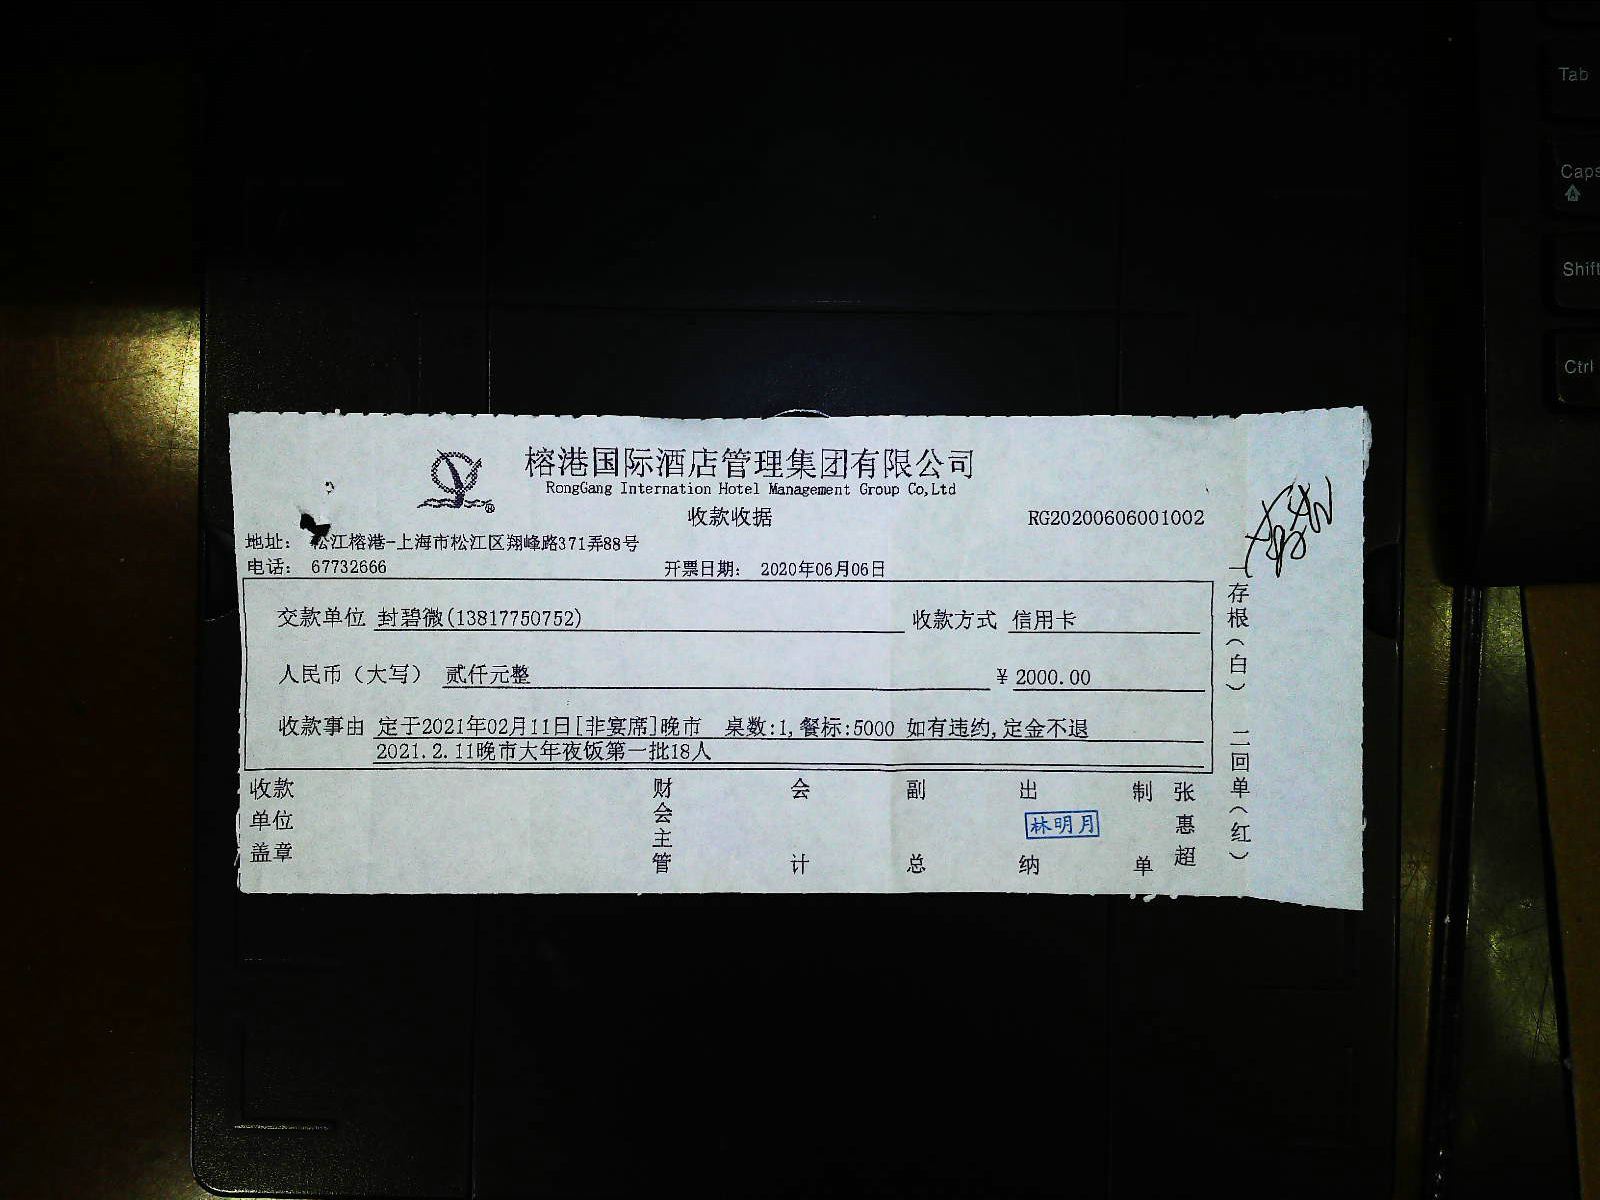 榕港国际酒店管理集团有限公司
RongGang Internation Hotel Management Group Co,Ltd
收款收据 RG20200606001002
地址： 松江榕港-上海市松江区翔峰路371弄88号
电话： 67732666 开票日期： 2020年06月06日
交款单位 封碧微(13817750752) 收款方式 信用卡
人民币（大写） 贰仟元整 ¥ 2000.00
收款事由 定于2021年02月11日[非宴席]晚市 桌数:1,餐标:5000 如有违约,定金不退
2021.2.11晚市大年夜饭第一批18人
收款单位盖章 财会主管 会计 副总 出纳 林明月 制单 张惠超
一存根（白） 二回单（红）
Tab
Caps
Shift
Ctrl